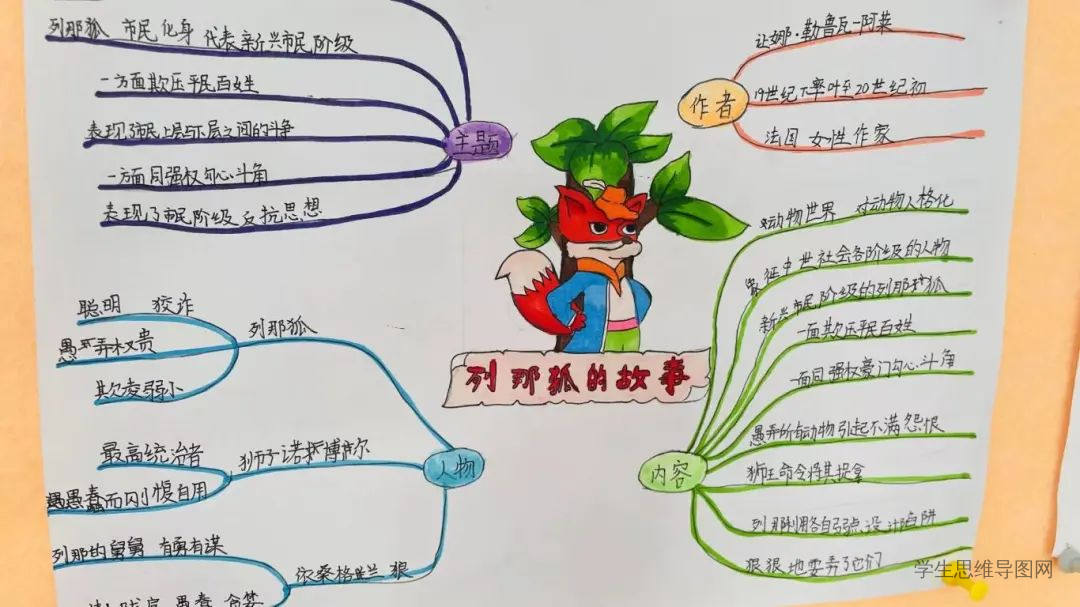 列那狐 市民化身 代表新兴市民阶级
一方面欺压平民百姓
表现了市民上层与下层之间的斗争
一方面同强权勾心斗角
表现了市民阶级反抗思想
主题
让娜·勒鲁瓦-阿莱
19世纪下半叶至20世纪初
法国 女性作家
作者
列那狐的故事
聪明 狡诈
愚弄权贵
欺凌弱小
列那狐
最高统治者
愚蠢而刚愎自用
狮子诺勃尔
人物
列那的舅舅 有勇有谋
依桑格兰 狼
愚蠢 贪婪
对动物世界 对动物人格化
象征中世社会各阶级的人物
新兴市民阶级的列那狐
一面欺压平民百姓
一面同强权豪门勾心斗角
愚弄所有动物引起不满怨恨
狮王命令将其捉拿
列那利用各自弱点设计陷阱
狠狠地耍弄了它们
内容
学生思维导图网